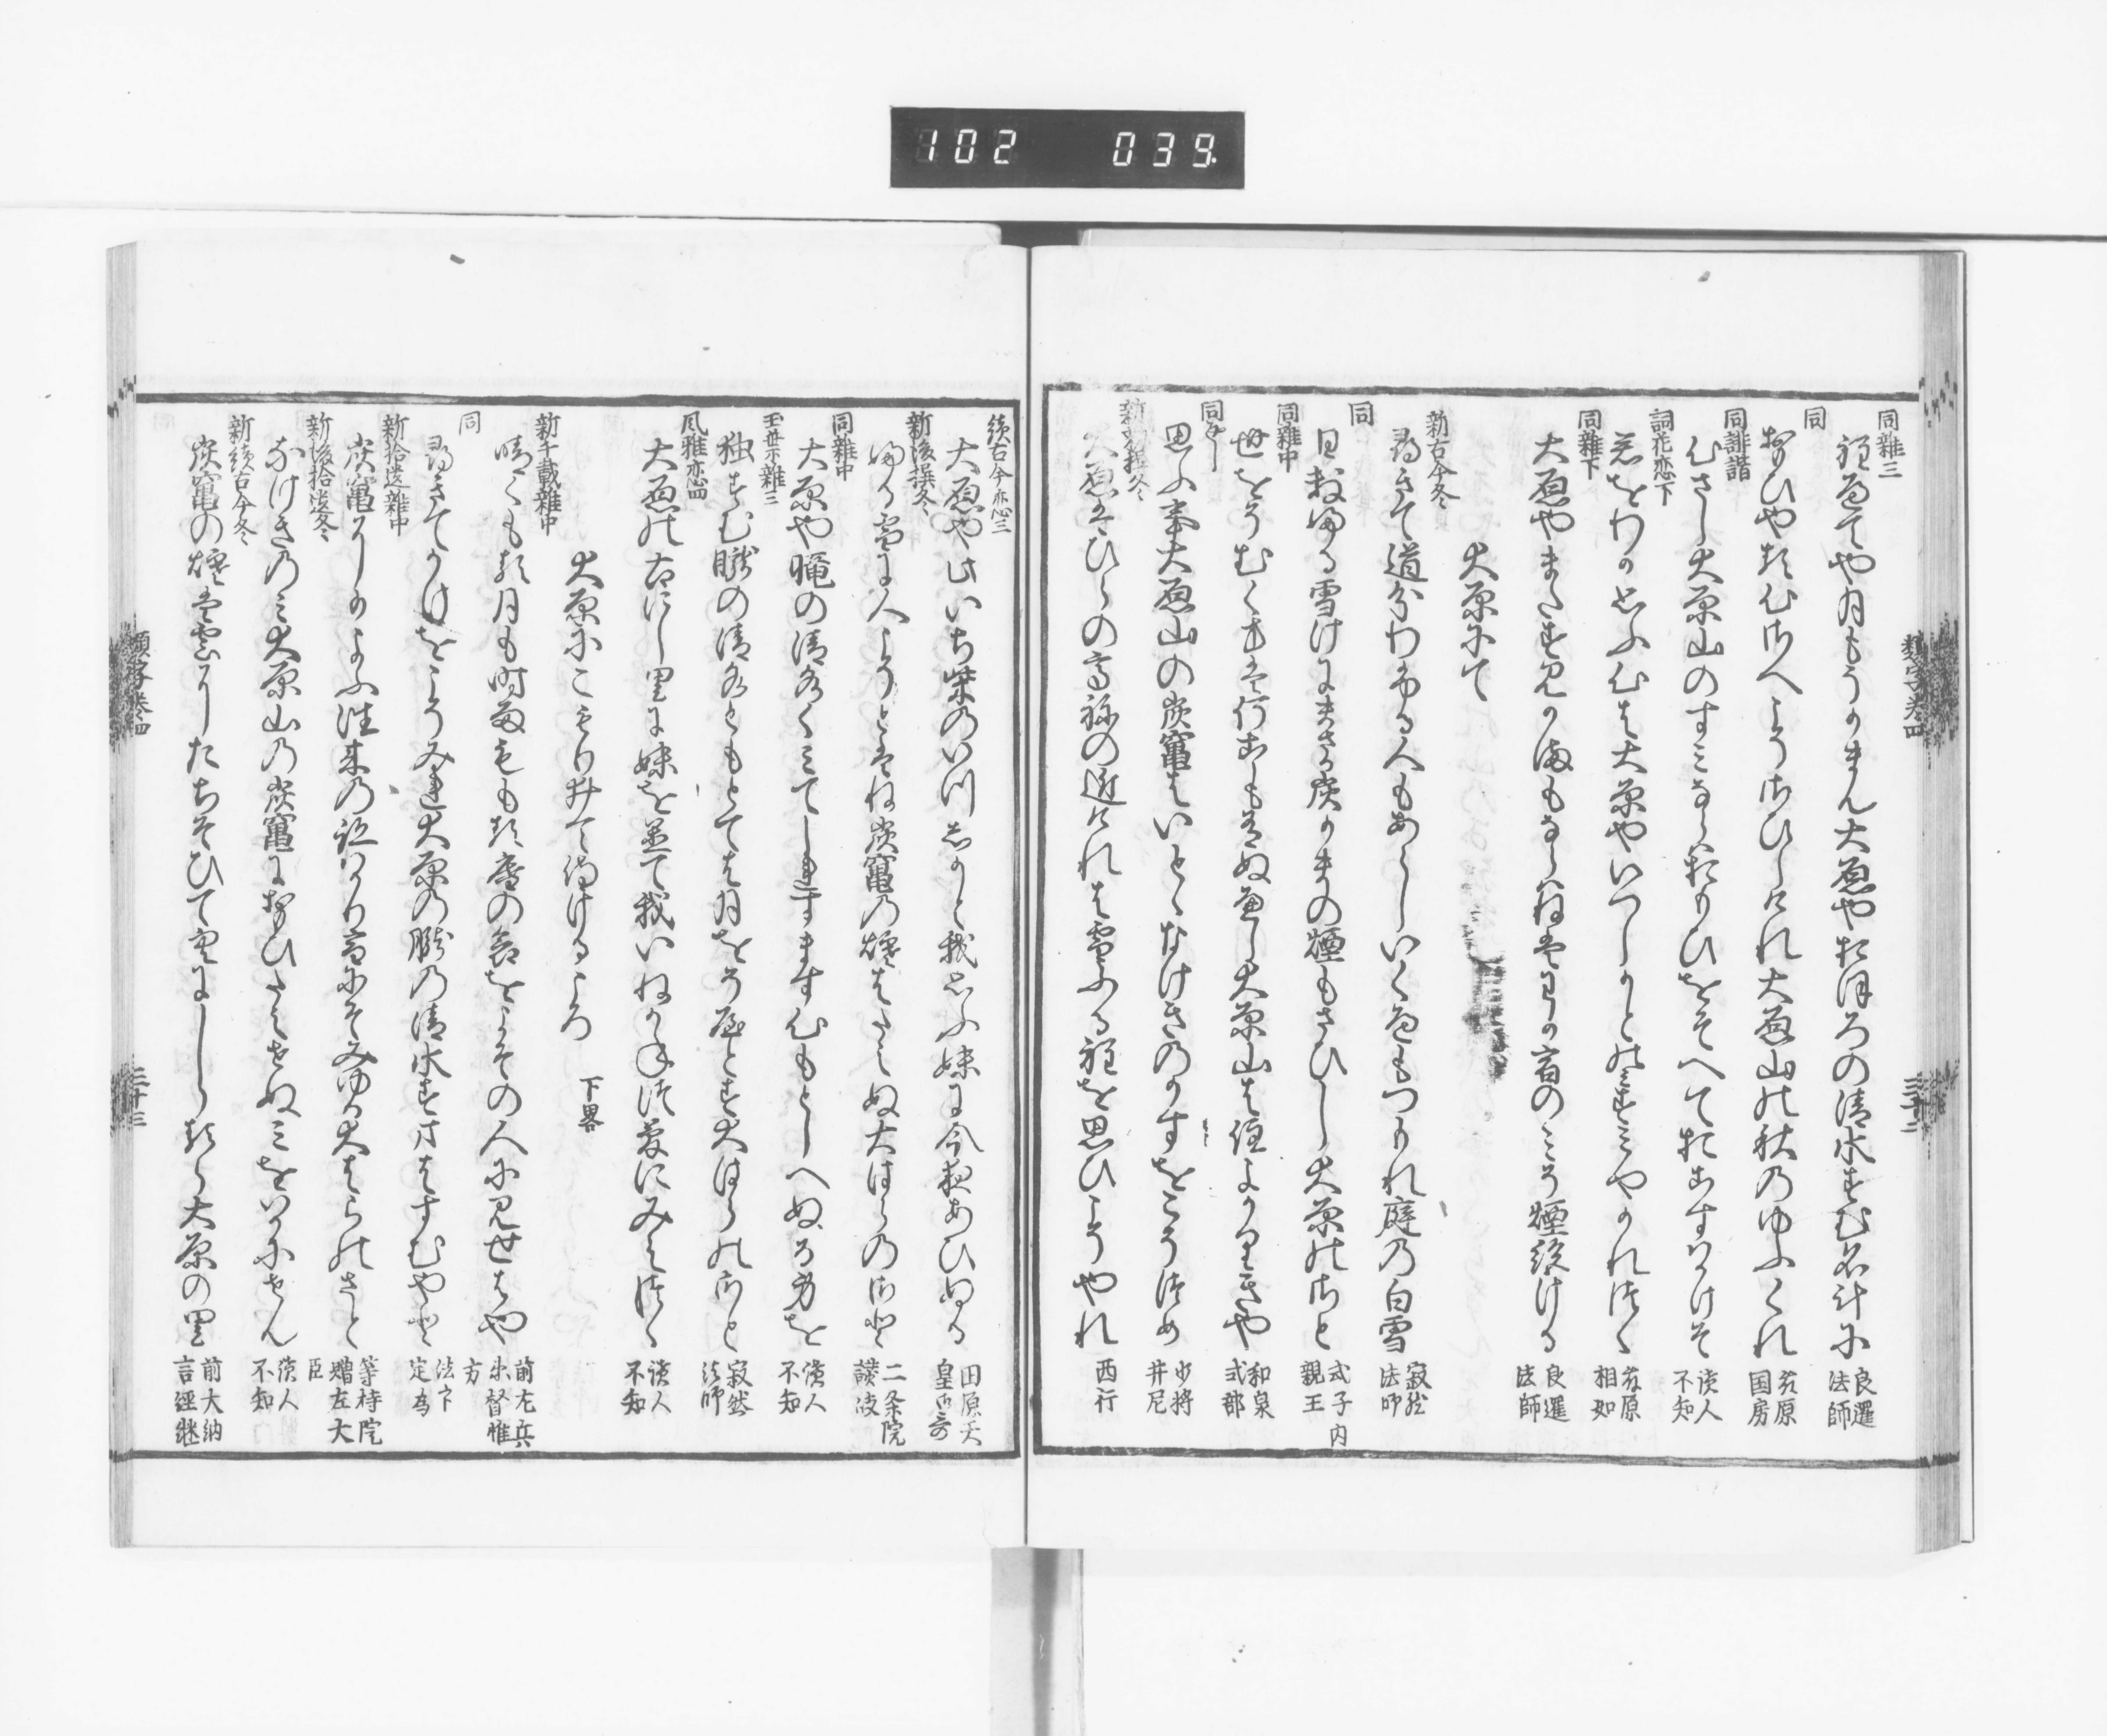 102 039
類字巻四
三十二
同雜三
程近てや月もうかまん大原やおほろの清水すむ名計に 良暹法師
同
おもひやる心さへこそさひしけれ大原山の秋のゆふくれ 藤原国房
同誹諧
こさし大原山のすみならはおもひをそへておこすはかけそ 読人不知
詞花恋下
君をわか思ふ心は大原やいつしかとのみすみやかれつゝ 藤原相如
同雜下
大原やまたすみかまもならはねはわか宿のみそ煙絶ける 良暹法師
大原にて
新古今冬
尋きて道分わふる人もあらしいくへもつもれ庭の白雪 寂然法師
同
日数ふる雪けにまさる炭かまの煙もさひし大原のさと 式子内親王
同雜中
世をそむくかたは何くも有ぬへし大原山は住よかりきや 和泉式部
同
思ふ事大原山の炭竈はいとゝなけきのかすをこそつめ 少将井尼
新勅撰冬
大原はひらの高ねの近けれは雪ふる程を思ひこそやれ 西行
続古今恋三
大原や此いち柴のいつしかと我思ふ妹に今夜あひぬる 田原天皇御哥
新後撰冬
ふる雪に人こそとはね炭竈の煙はたえぬ大はらのさと 二条院讃岐
同雜中
大原や朧の清水くみてしれすます心もとしへぬる身を 読人不知
玉葉雜三
独すむ朧の清水ともとては月をそすます大はらのさと 寂然法師
風雅恋四
大原の古にし里に妹を置て我いねかねつ夢にみえつゝ 読人不知
大原にこもりゐて侍けるころ 下畧
新千載雜中
晴くもる月も時雨ももる庵の哀をよその人に見せはや 前左兵衛督惟方
同
尋きてかけをこそみれ大原の朧の清水すますはすむやと 法下定為
新拾遺雜中
炭竈のしるへの道に往来の跡はかり雪にそみゆる大はらのさと 等持院贈左大臣
新後拾遺冬
なけきのみ大原山の炭竈におもひたえせぬみをいかにせん 読人不知
新続古今冬
炭竈の煙は空にたちそひて雲にしくるゝ大原の里 前大納言經継
類字巻四
三十三